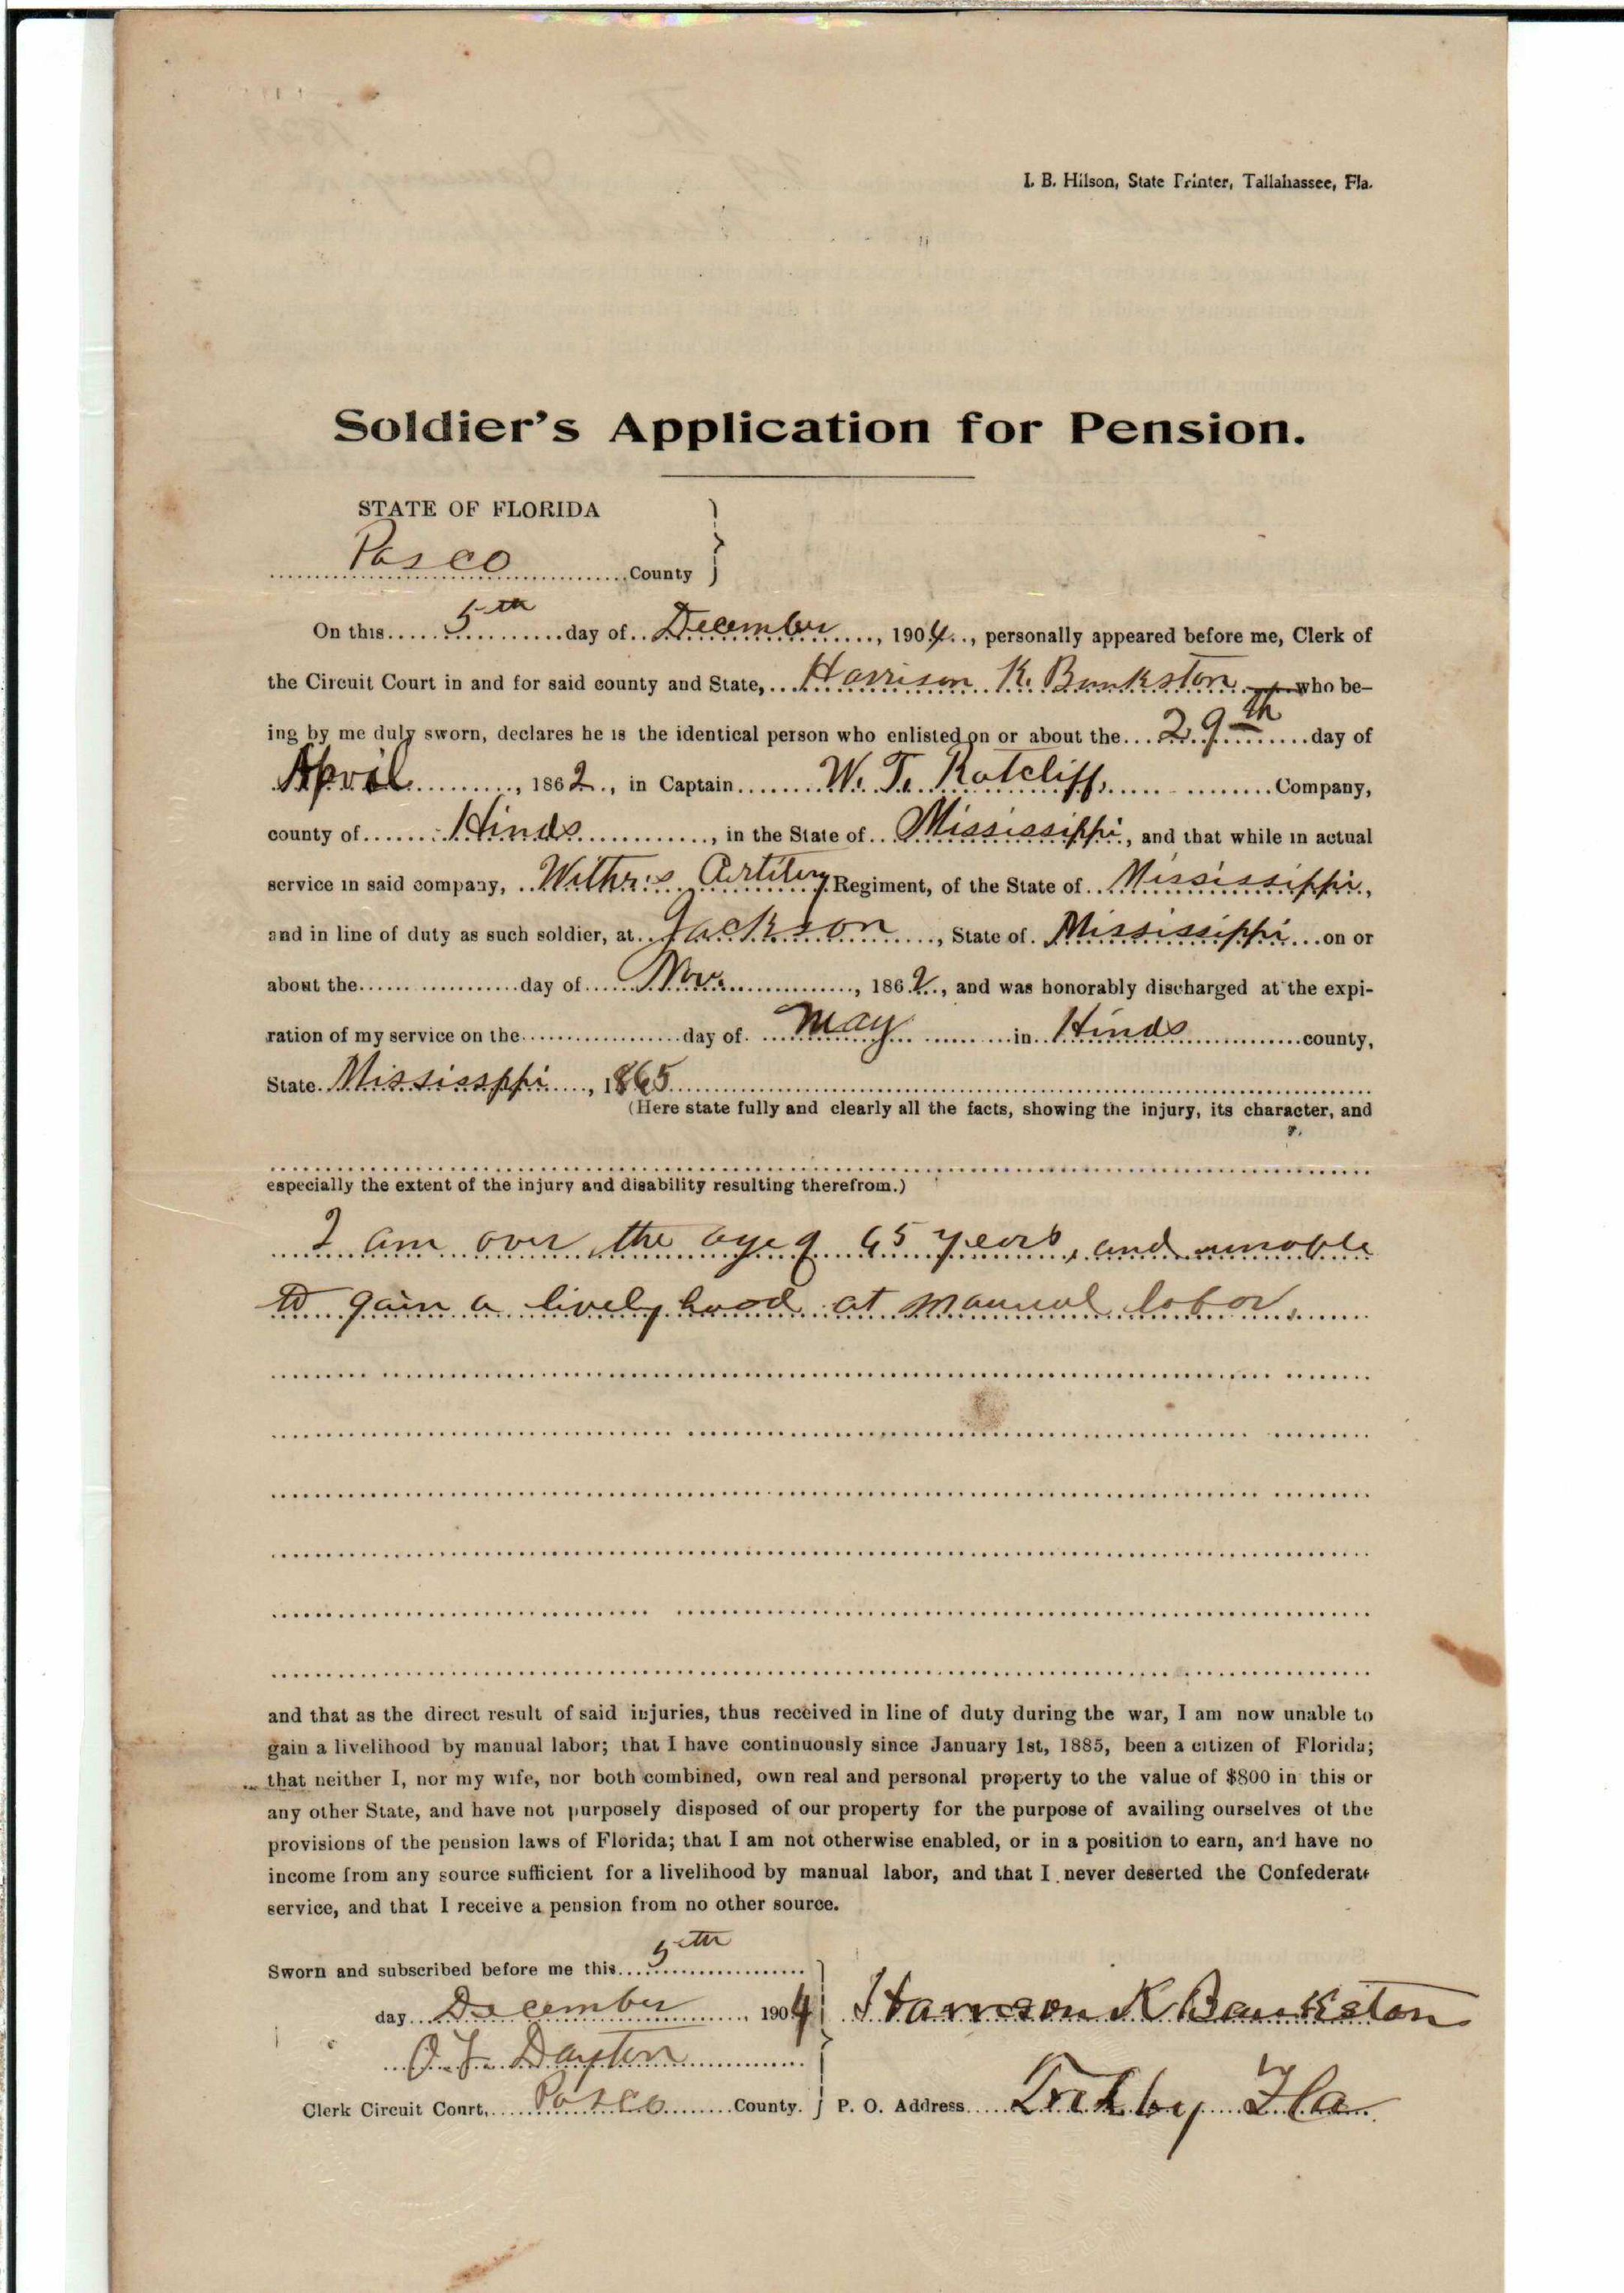 I. B. Hilson, State Printer, Tallahassee, Fla.
Soldier's Application for Pension.
STATE OF FLORIDA
Pasco County
On this 5th day of December, 1904, personally appeared before me, Clerk of
the Circuit Court in and for said county and State, Harrison K. Bankston who be-
ing by me duly sworn, declares he is the identical person who enlisted on or about the 29th day of
April, 1862, in Captain W. T. Ratcliff, Company,
county of Hinds, in the State of Mississippi, and that while in actual
service in said company, Artillery Regiment, of the State of Mississippi,
and in line of duty as such soldier, at Jackson, State of Mississippi on or
about the day of Nov., 1862, and was honorably discharged at the expi-
ration of my service on the day of May in Hinds county,
State Mississppi, 1865
(Here state fully and clearly all the facts, showing the injury, its character, and
especially the extent of the injury and disability resulting therefrom.)
I am over the age of 65 years, and unable
to gain a livelyhood at manual labor.
and that as the direct result of said injuries, thus received in line of duty during the war, I am now unable to
gain a livelihood by manual labor; that I have continuously since January 1st, 1885, been a citizen of Florida;
that neither I, nor my wife, nor both combined, own real and personal property to the value of $800 in this or
any other State, and have not purposely disposed of our property for the purpose of availing ourselves of the
provisions of the pension laws of Florida; that I am not otherwise enabled, or in a position to earn, and have no
income from any source sufficient for a livelihood by manual labor, and that I never deserted the Confederate
service, and that I receive a pension from no other source.
Sworn and subscribed before me this 5th
day December, 1904 Harrison K Bankston
Dayton
Clerk Circuit Court, Pasco County. P. O. Address Trilby Fla